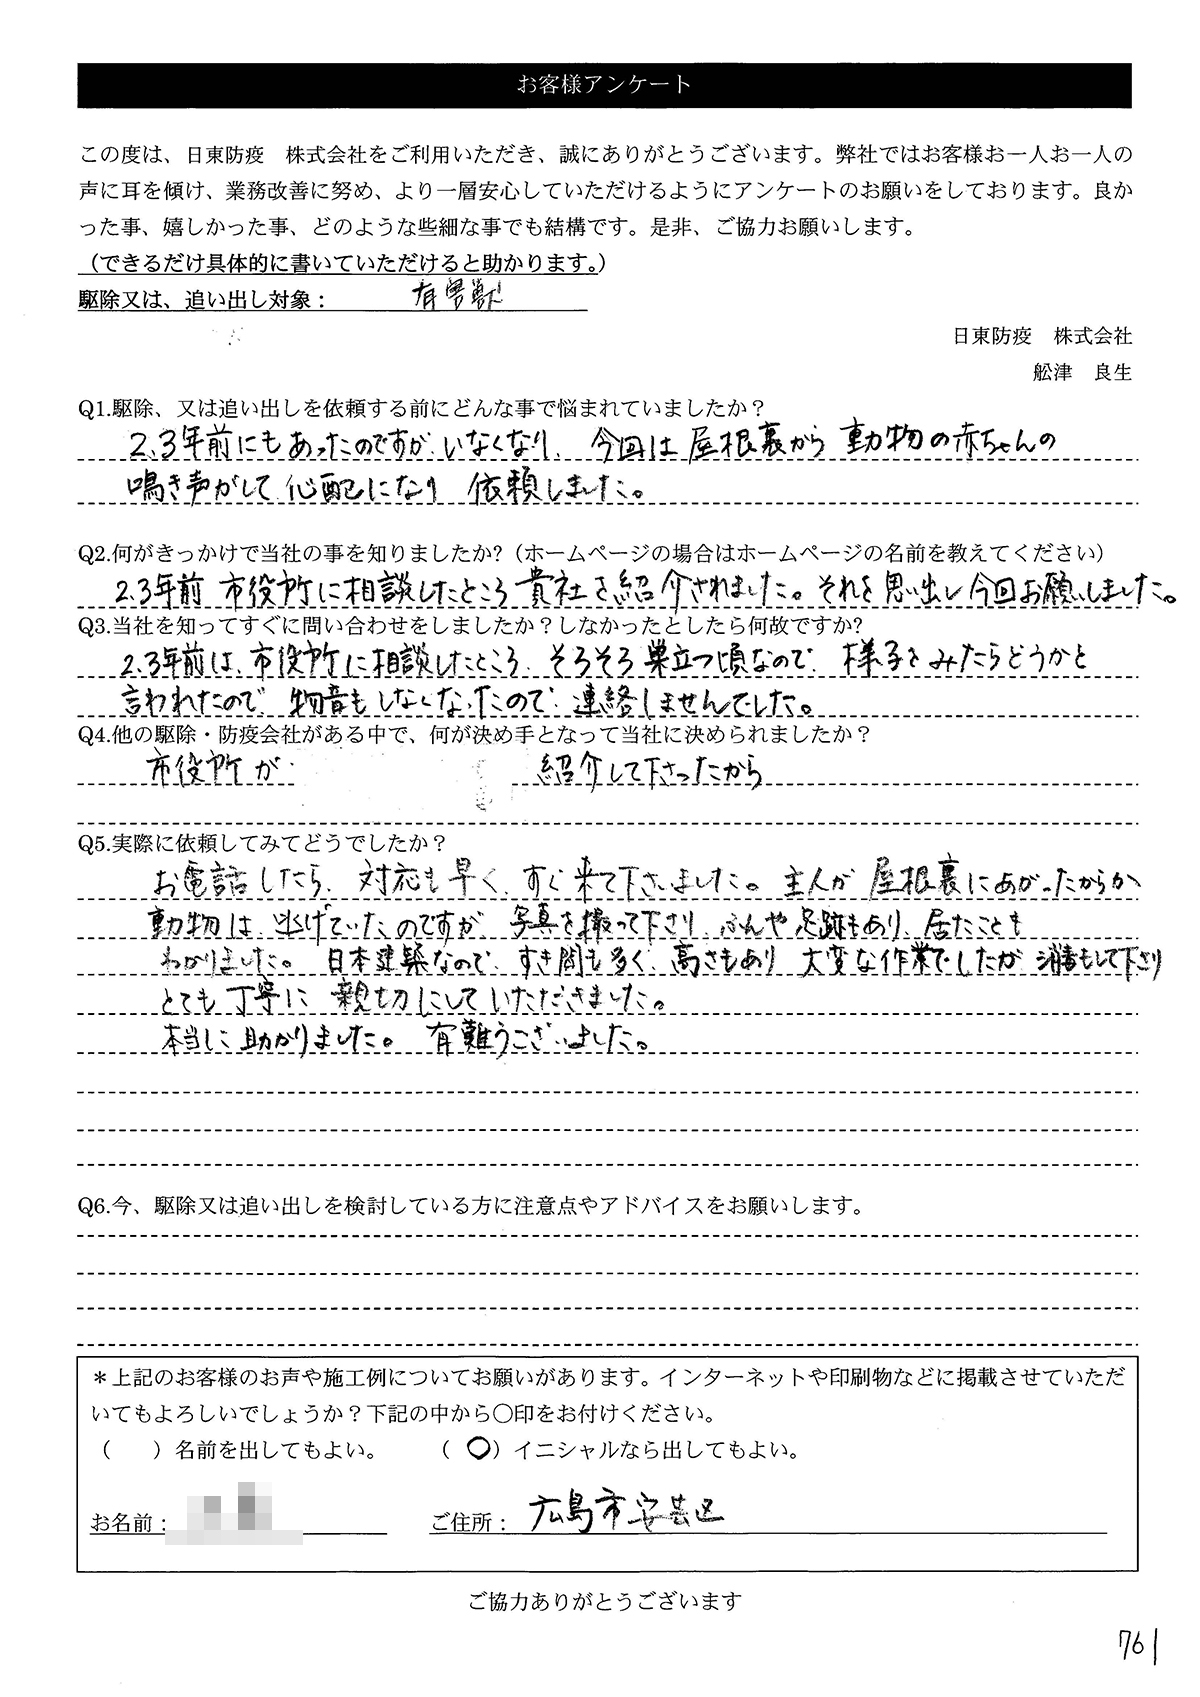 お客様アンケート
この度は、日東防疫　株式会社をご利用いただき、誠にありがとうございます。弊社ではお客様お一人お一人の
声に耳を傾け、業務改善に努め、より一層安心していただけるようにアンケートのお願いをしております。良か
った事、嬉しかった事、どのような些細な事でも結構です。是非、ご協力お願いします。
（できるだけ具体的に書いていただけると助かります。）
駆除又は、追い出し対象： 有害獣
日東防疫　株式会社
舩津　良生
Q1.駆除、又は追い出しを依頼する前にどんな事で悩まれていましたか？
2.3年前にもあったのですが、いなくなり、今回は屋根裏から動物の赤ちゃんの
鳴き声がして心配になり 依頼しました。
Q2.何がきっかけで当社の事を知りましたか?（ホームページの場合はホームページの名前を教えてください）
2.3年前 市役所に相談したところ貴社を紹介されました。それを思い出し今回お願いしました。
Q3.当社を知ってすぐに問い合わせをしましたか？しなかったとしたら何故ですか?
2.3年前は、市役所に相談したところ、そろそろ巣立つ頃なので、様子をみたらどうかと
言われたので、物音もしなくなったので、連絡しませんでした。
Q4.他の駆除・防疫会社がある中で、何が決め手となって当社に決められましたか？
市役所が 紹介して下さったから
Q5.実際に依頼してみてどうでしたか？
お電話したら、対応も早く、すぐ来て下さいました。主人が屋根裏にあがったからか
動物は、逃げていたのですが、写真を撮って下さり、ふんや足跡もあり、居たことも
わかりました。日本建築なので、すき間も多く、高さもあり 大変な作業でしたが 消毒もして下さり
とても丁寧に 親切にしていただきました。
本当に助かりました。有難うございました。
Q6.今、駆除又は追い出しを検討している方に注意点やアドバイスをお願いします。
＊上記のお客様のお声や施工例についてお願いがあります。インターネットや印刷物などに掲載させていただ
いてもよろしいでしょうか？下記の中から〇印をお付けください。
（　　）名前を出してもよい。 （ 〇 ）イニシャルなら出してもよい。
お名前： ご住所： 広島市安芸区
ご協力ありがとうございます
761